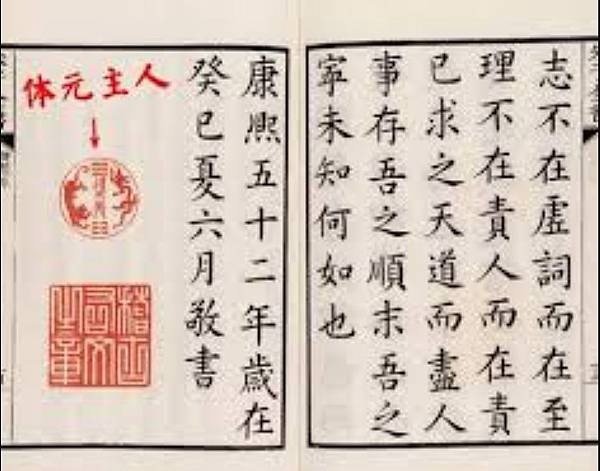 志不在虛詞而在至
理不在責人而在責
已求之天道而盡人
事存吾之順末吾之
寧未知何如也
康熙五十二年歲在
癸巳夏六月敬書
体元主人
稽古右文之章